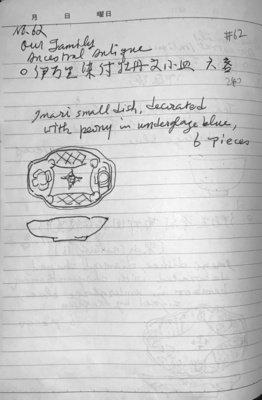 月 日 曜日
No. 62
#62
Our Family
Ancestral Antique
○伊万里染付牡丹文小皿 六客
Imari small dish, decorated
with peony in underglaze blue,
6 pieces